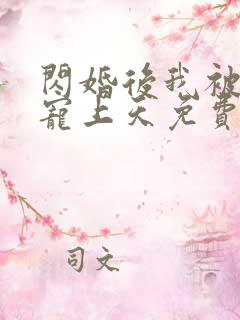 閃婚後我被
寵上天免費
司文